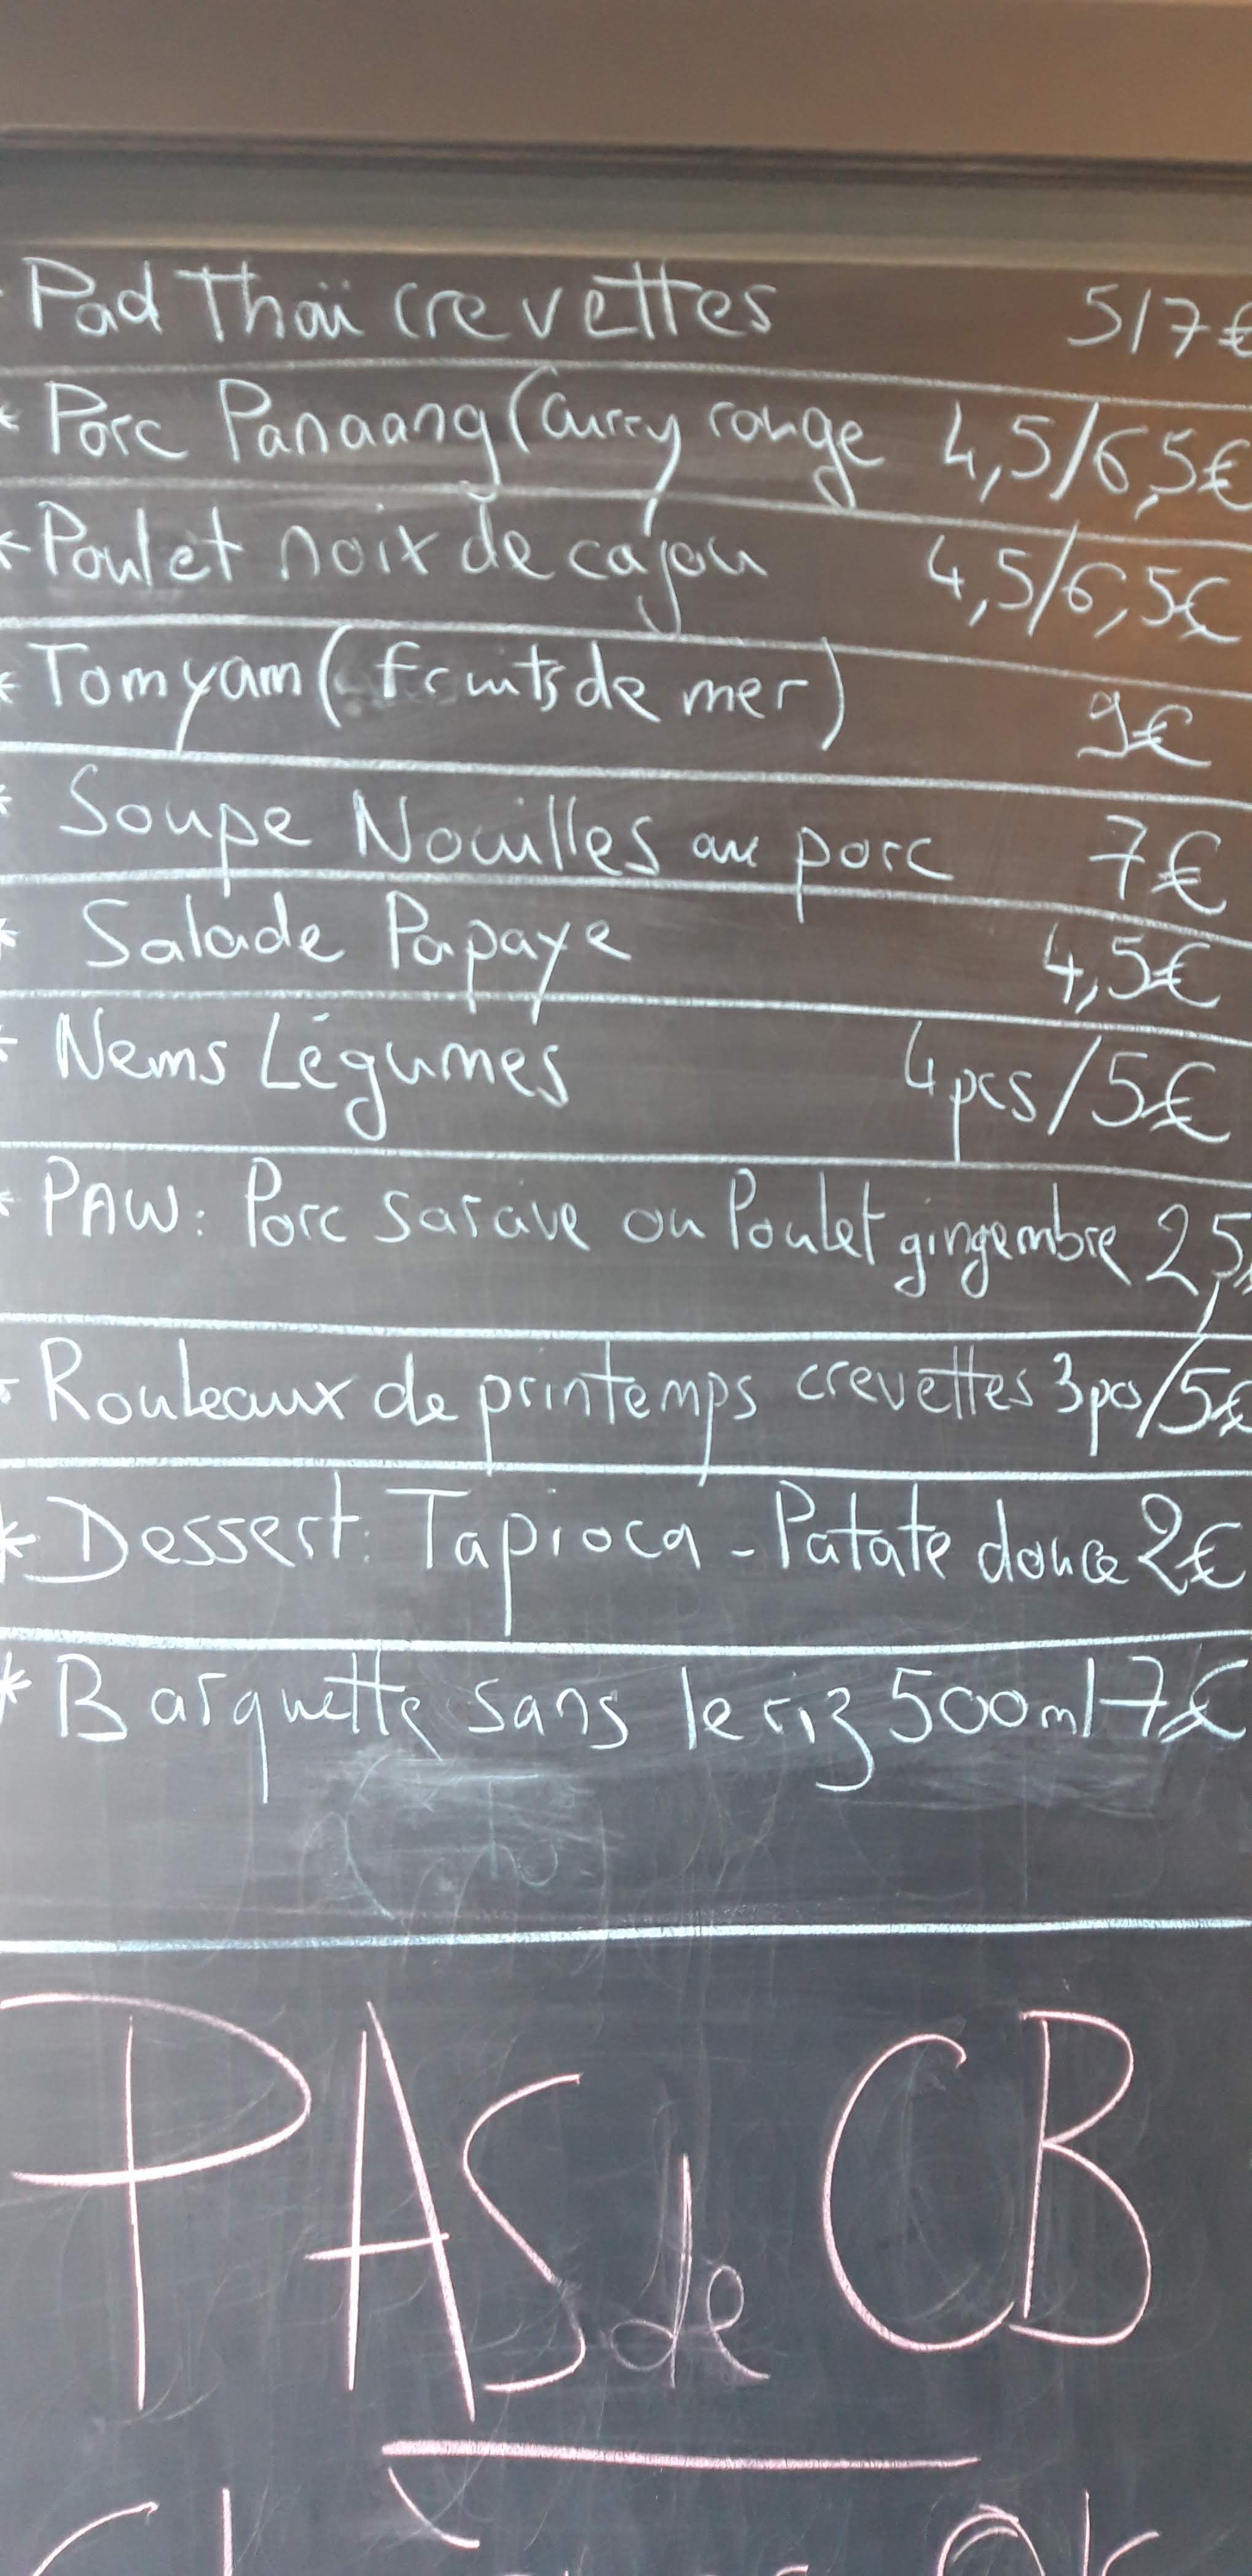 Pad Thaï crevettes 5/7€
* Porc Panaang (Curry rouge 4,5/6,5€
* Poulet noix de cajou 4,5/6,5€
* Tomyam (fruits de mer) 9€
* Soupe Nouilles au porc 7€
* Salade Papaye 4,5€
* Nems Légumes 4pcs/5€
* PAW: Porc saraive ou Poulet gingembre 2,5
* Rouleaux de printemps crevettes 3pcs/5€
* Dessert: Tapioca - Patate douce 2€
* Barquette sans le riz 500ml 7€
PAS de CB